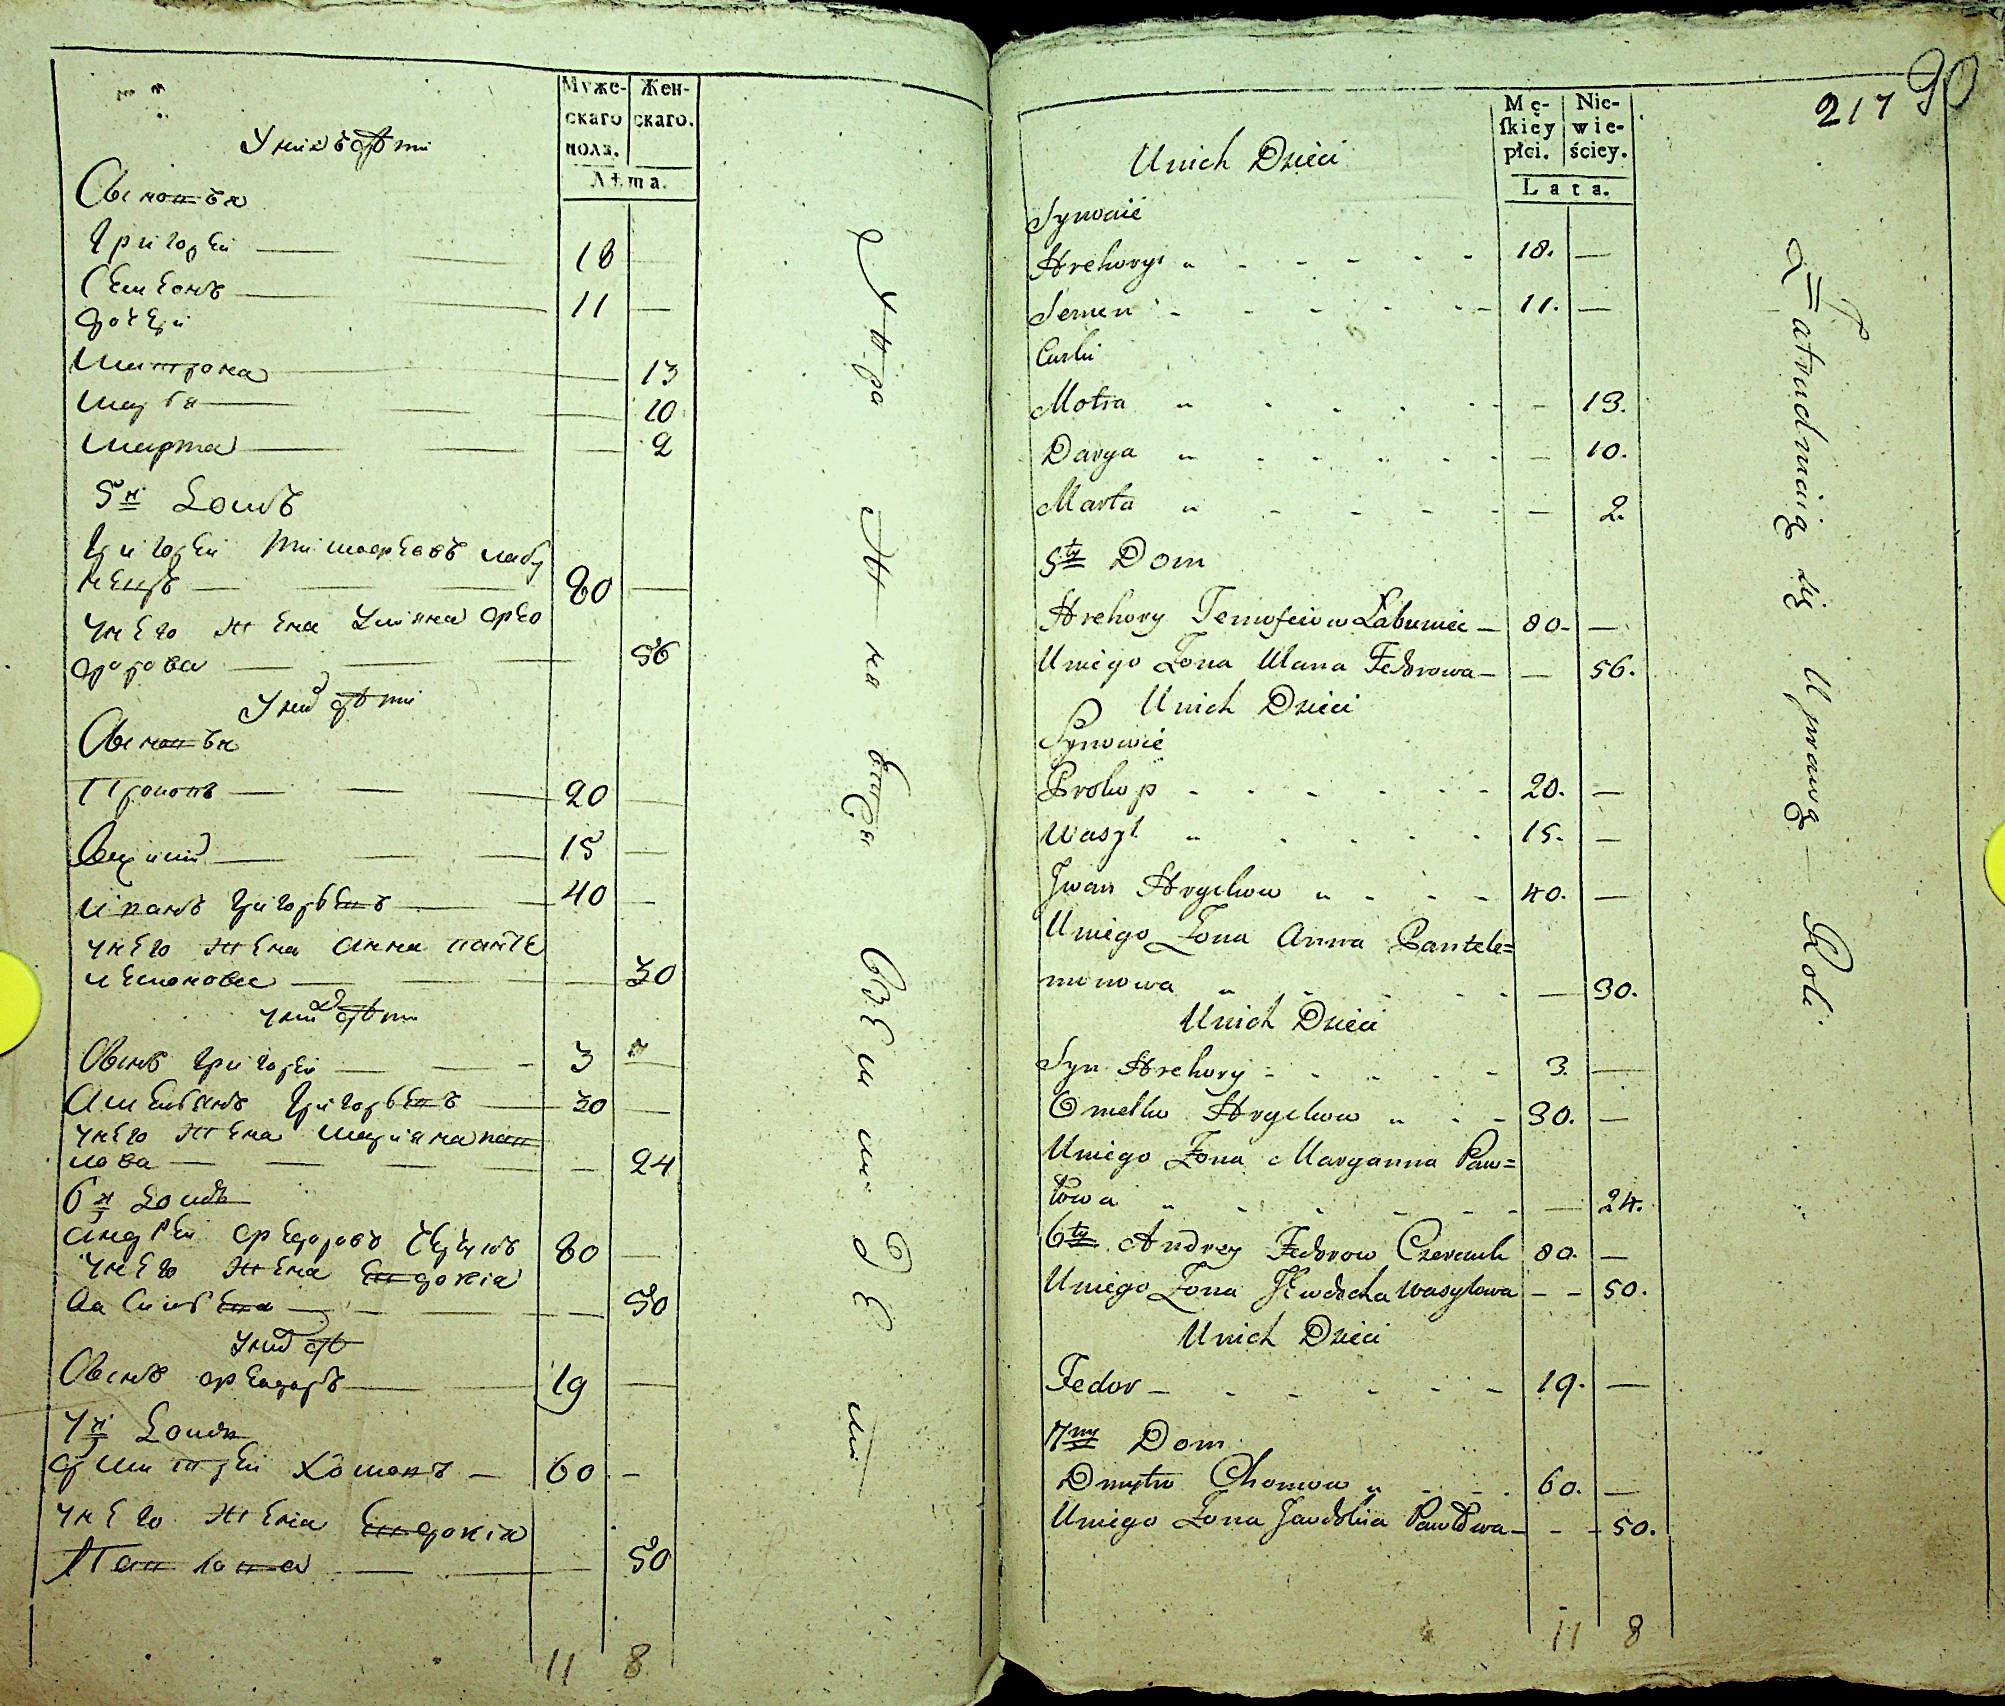 Муже-
скаго
полꙋ.
Жен-
скаго.
Лѣта.
У нихъ дѣти
Сыновья
Григорей — 18 —
Семенъ — 11 —
дочери
Матрона — 13
Марья — 10
Марта — 2
5й Домъ
Григорей Тимофеевъ Лабу
нецъ — 80 —
У него жена Уляна Фео
дорова — 56
У них дѣти
Сыновья
Прокопъ — 20 —
— 15 —
Иванъ Григорьевъ — 40 —
У него жена Анна Панте
лемонова — 30
У них дѣти
Сынъ Григорей — 3 —
Амельянъ Григорьевъ — 30 —
У него жена Марияна Пав
лова — 24
6й Домъ
Андрей Федоровъ 80 —
У него жена Евдокия
Васильева — 50
У них дѣ
Сынъ Федоръ — 19 —
7й Домъ
Дмитрей Хомовъ — 60 —
У него жена Евдокия
Павлова — 50
11 8
217 90
Mę-
skiey
płci.
Nie-
wie-
ściey.
Lata.
Unich Dzieci
Synowie
Hrehory „ - - - - - 18. —
Semen - - - - - - 11. —
Curki
Motra „ - - - - - — 13.
Darya „ - - - - - — 10.
Marta „ - - - - - — 2.
5ty Dom
Hrehory Temofeiow Łabuniec — 80. —
Uniego Żona Ulana Fedorowa — — 56.
Unich Dzieci
Synowie
Prokop - - - - - - 20. —
Wasyl „ - - - - 15. —
Jwan Hryckow „ - - - 40. —
Uniego Żona Anna Pantele=
monowa „ - - - - — 30.
Unich Dzieci
Syn Hrehory - - - - - 3. —
Omelko Hryckow „ - - 30. —
Uniego Żona Maryanna Paw=
łowa „ - - - - - — 24.
6ty Andrey Fedorow 80. —
Uniego Żona Wasylowa - - 50.
Unich Dzieci
Fedor - - - - - - - 19. —
7my Dom
Dmytro Chomow „ - - - 60. —
Uniego Żona Pawłowa - - - 50.
11 8
Zatrudniaią się Uprawą Roli